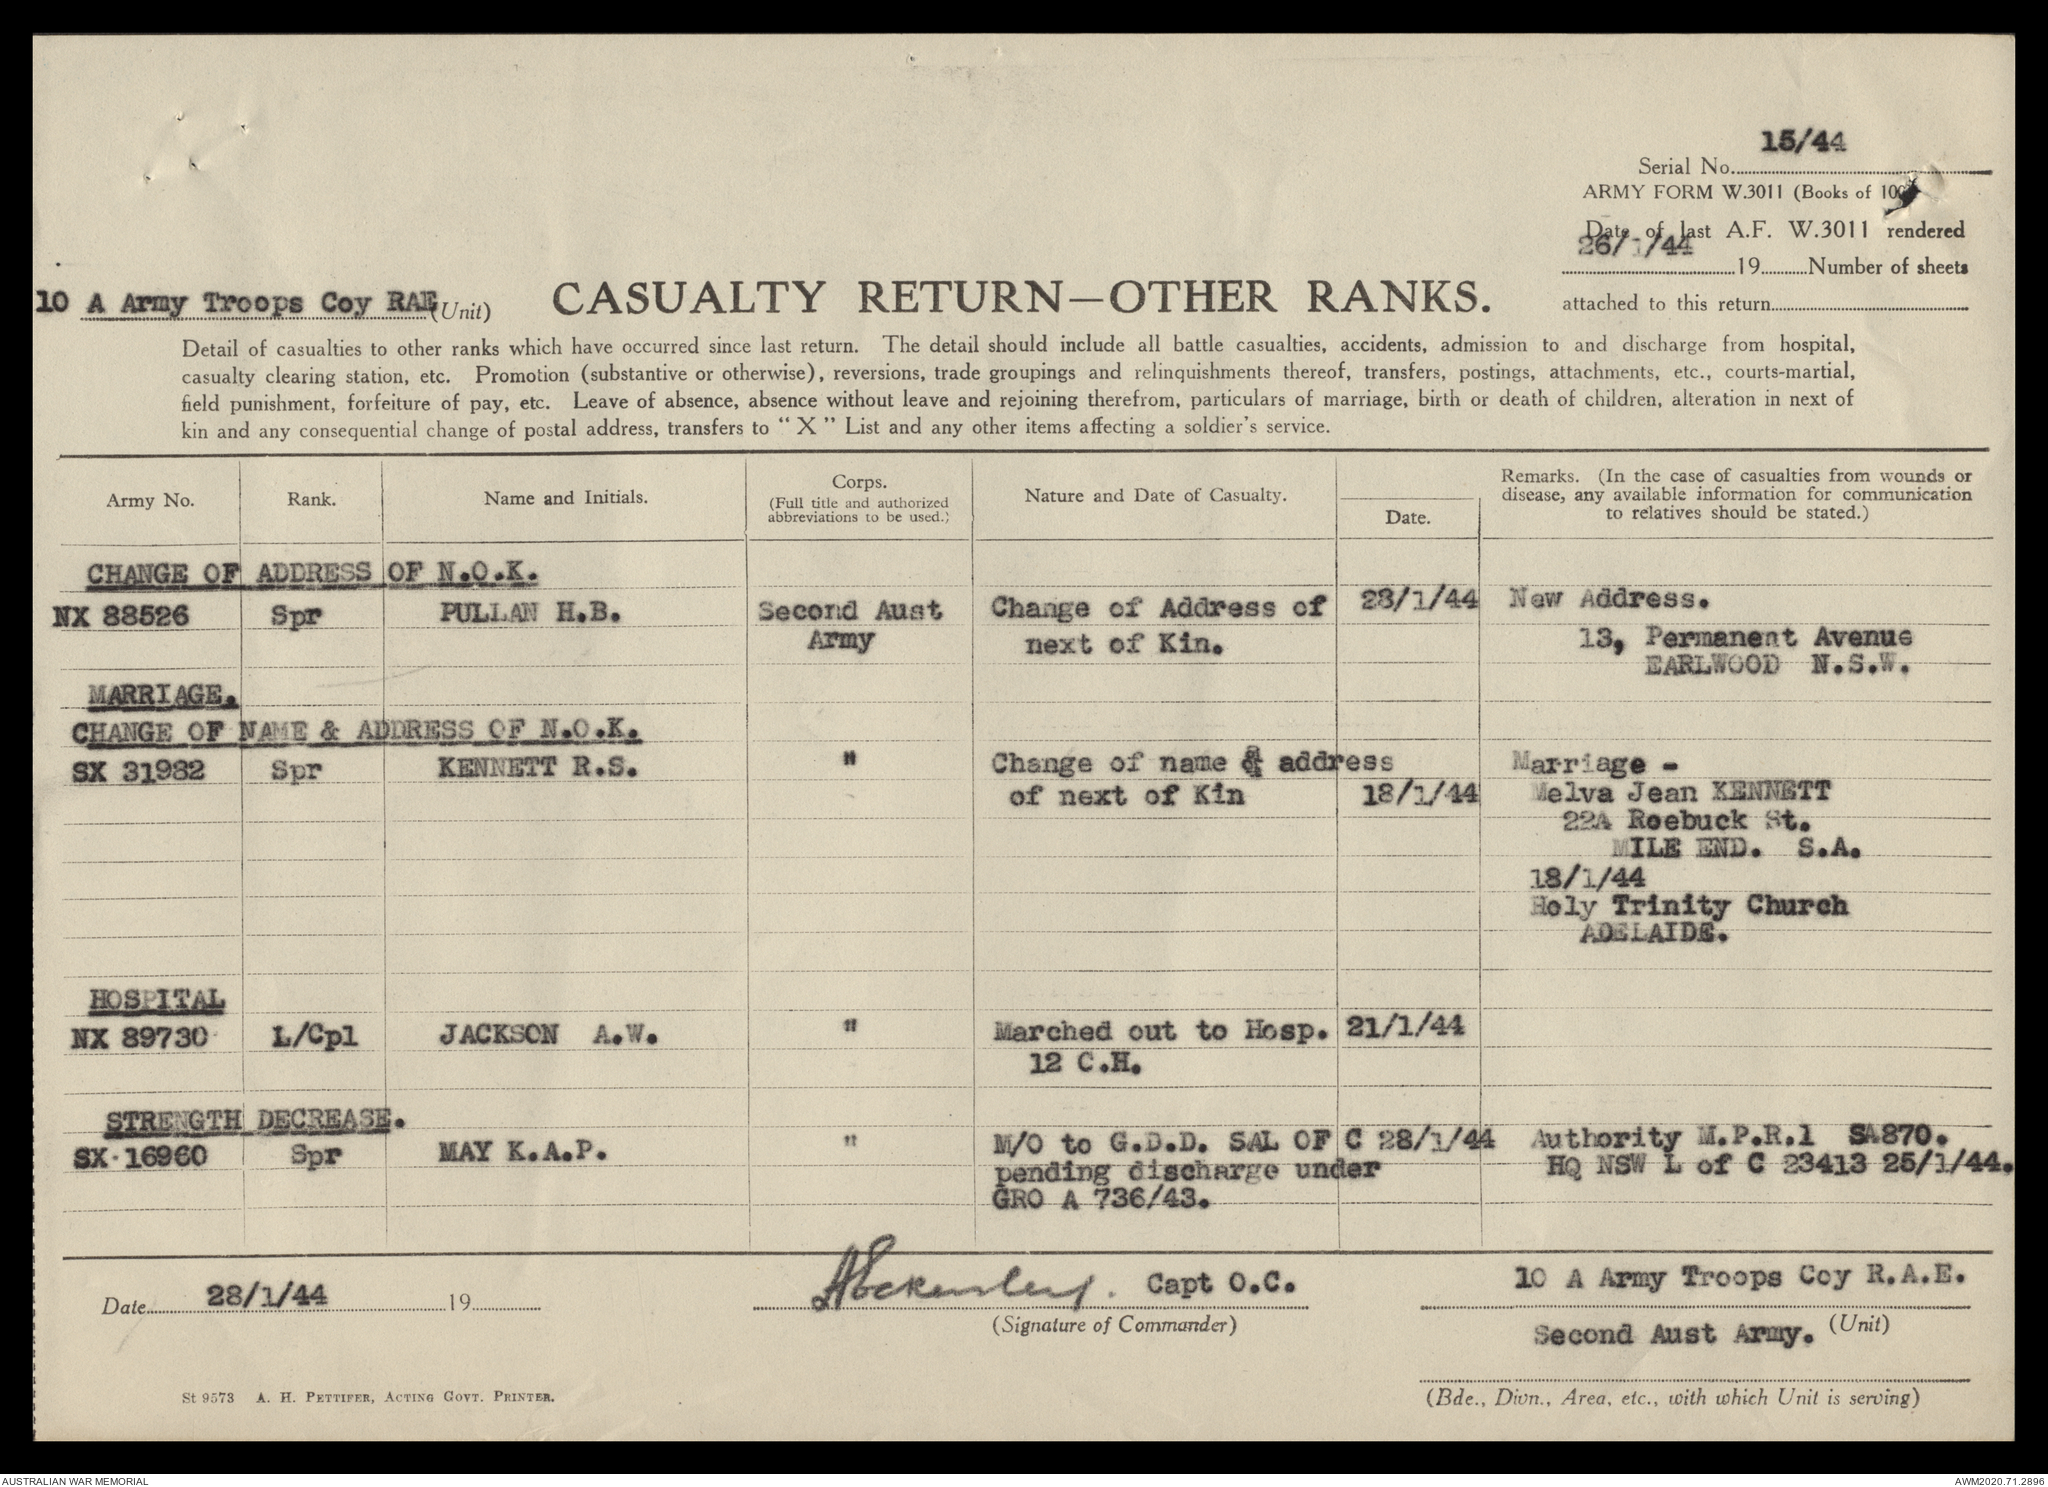 15/44
Serial No.
ARMY FORM W.3011 (Books of 100)
Date of last A.F. W.3011 rendered
26/1/44 19 Number of sheets
attached to this return
10 A Army Troops Coy RAE (Unit) CASUALTY RETURN—OTHER RANKS.
Detail of casualties to other ranks which have occurred since last return. The detail should include all battle casualties, accidents, admission to and discharge from hospital,
casualty clearing station, etc. Promotion (substantive or otherwise), reversions, trade groupings and relinquishments thereof, transfers, postings, attachments, etc., courts-martial,
field punishment, forfeiture of pay, etc. Leave of absence, absence without leave and rejoining therefrom, particulars of marriage, birth or death of children, alteration in next of
kin and any consequential change of postal address, transfers to "X" List and any other items affecting a soldier's service.
Army No. Rank. Name and Initials. Corps. (Full title and authorized abbreviations to be used.) Nature and Date of Casualty. Date. Remarks. (In the case of casualties from wounds or disease, any available information for communication to relatives should be stated.)
CHANGE OF ADDRESS OF N.O.K.
NX 88526 Spr PULLAN H.B. Second Aust Change of Address of 28/1/44 New Address.
Army next of Kin. 13, Permanent Avenue
EARLWOOD N.S.W.
MARRIAGE.
CHANGE OF NAME & ADDRESS OF N.O.K.
SX 31982 Spr KENNETT R.S. " Change of name & address Marriage -
of next of Kin 18/1/44 Melva Jean KENNETT
22A Roebuck St.
MILE END. S.A.
18/1/44
Holy Trinity Church
ADELAIDE.
HOSPITAL
NX 89730 L/Cpl JACKSON A.W. " Marched out to Hosp. 21/1/44
12 C.H.
STRENGTH DECREASE.
SX 16960 Spr MAY K.A.P. " M/O to G.D.D. SAL OF C 28/1/44 Authority M.P.R.1 SA870.
pending discharge under HQ NSW L of C 23413 25/1/44.
GRO A 736/43.
Date 28/1/44 19 Capt O.C. 10 A Army Troops Coy R.A.E.
(Signature of Commander) (Unit)
Second Aust Army.
St 9573 A. H. PETTIFER, ACTING GOVT. PRINTER. (Bde., Divn., Area, etc., with which Unit is serving)
AUSTRALIAN WAR MEMORIAL AWM2020.71.2896